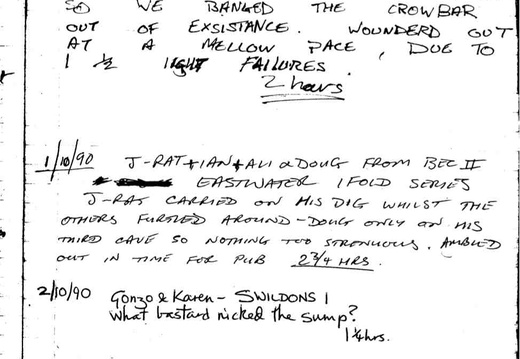 SO WE BANGED THE CROWBAR
OUT OF EXSISTANCE. WOUNDERD OUT
AT A MELLOW PACE, DUE TO
1 ½ LIGHT FAILURES.
2 hours
1/10/90 J-RAT + IAN + ALI & DOUG FROM BEC II
EASTWATER IFOLD SERIES
J-RAT CARRIED ON HIS DIG WHILST THE
OTHERS FURTLED AROUND - DOUG ONLY ON HIS
THIRD CAVE SO NOTHING TOO STRENUOUS. AMBLED
OUT IN TIME FOR PUB 2¾ HRS.
2/10/90 Gonzo & Karen - SWILDONS 1
What bastard nicked the sump?
1¼hrs.